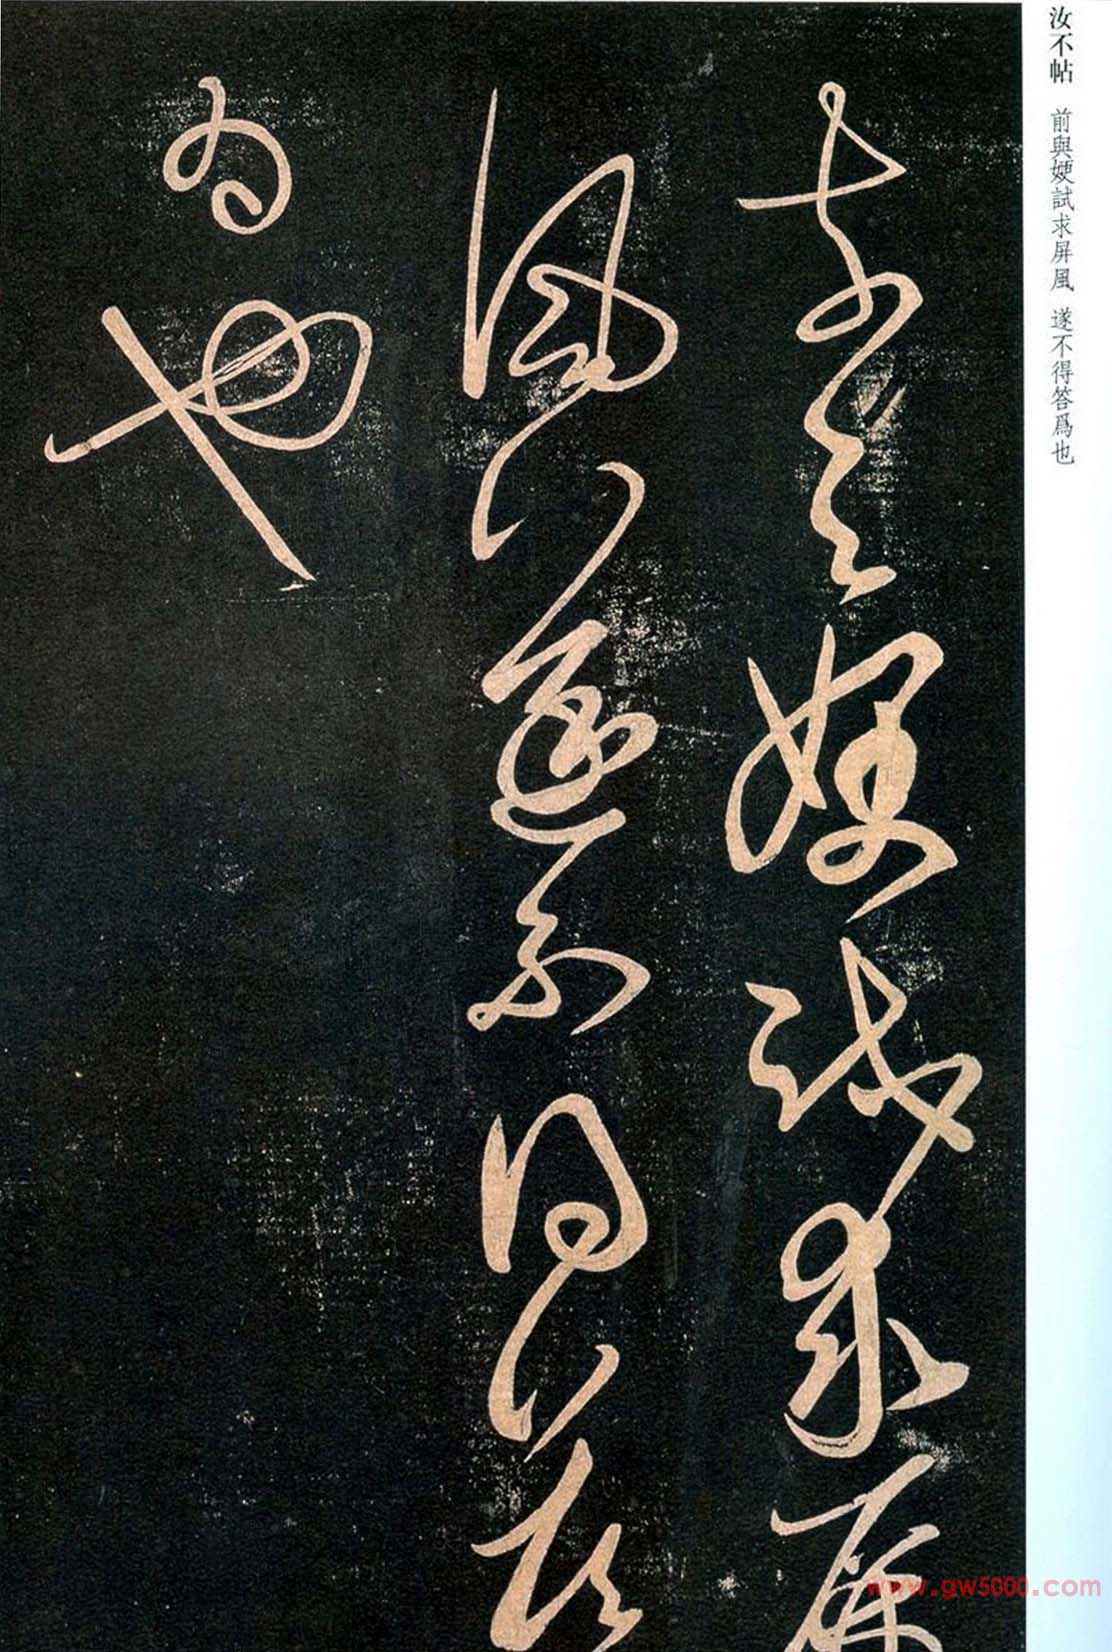 汝不帖 前與㛐試求屏風 遂不得答爲也
前與㛐試求屏
風遂不得答
爲也
www.gw5000.com